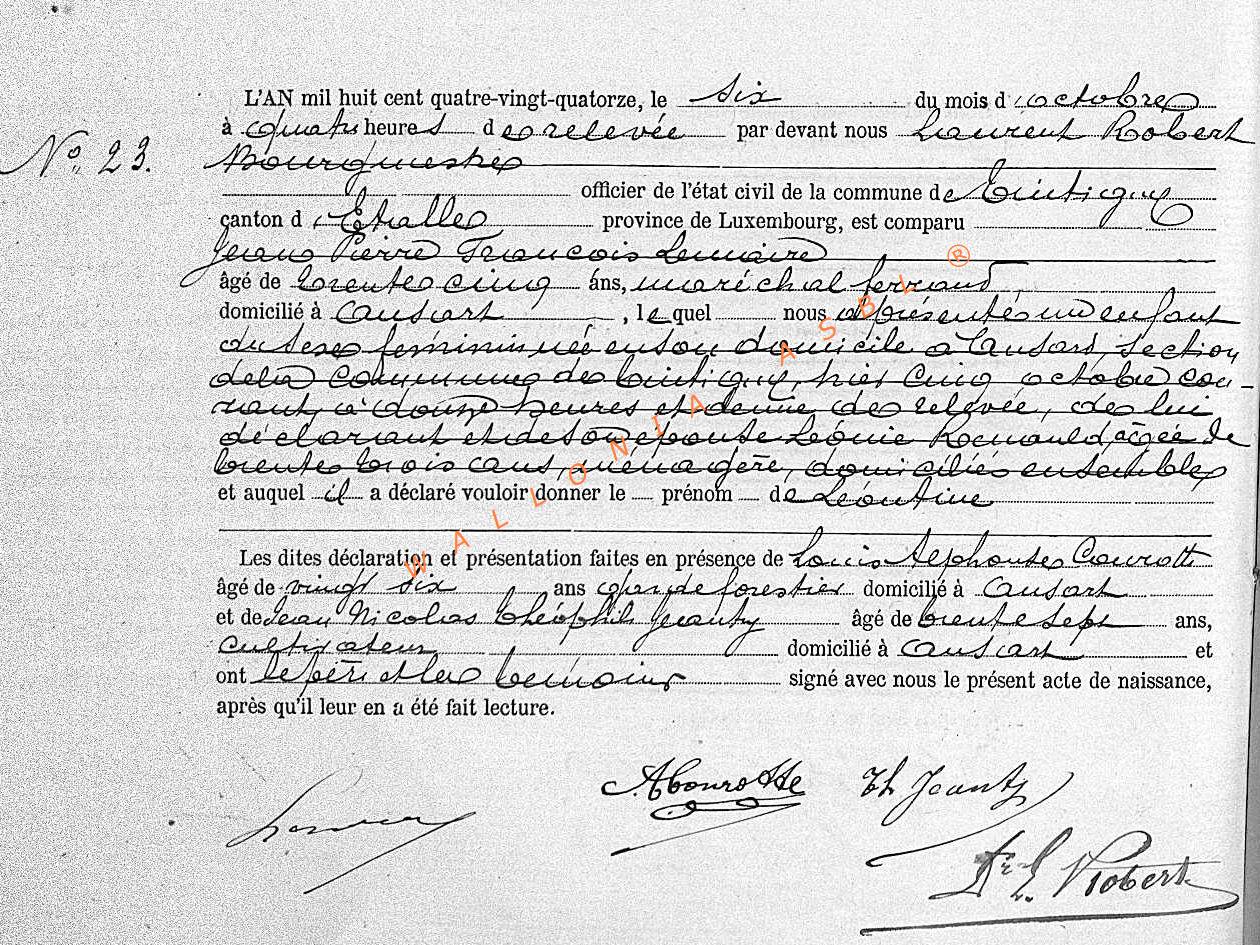 L'AN mil huit cent quatre-vingt-quatorze, le six du mois d'octobre
à quatre heures de relevée par devant nous Laurent Robert
No. 23.
Bourgmestre
officier de l'état civil de la commune de Tintigny
canton d'Etalle province de Luxembourg, est comparu
Jean Pierre François Lemaire
âgé de trente cinq áns, maréchal ferrant
domicilié à Ansart, lequel nous a présenté un enfant
du sexe féminin née en son domicile à Ansart, section
de la commune de Tintigny, hier cinq octobre cou-
rant, à douze heures et demie de relevée, de lui
déclarant et de son épouse Léonie Renauld, âgée de
trente trois ans, ménagère, domiciliés ensemble
et auquel il a déclaré vouloir donner le prénom de Léontine
Les dites déclaration et présentation faites en présence de Louis Alphonse Courotte
âgé de vingt six ans garde forestier domicilié à Ansart
et de Jean Nicolas Théophile Jeanty âgé de trente sept ans,
cultivateur domicilié à Ansart et
ont le père et les témoins signé avec nous le présent acte de naissance,
après qu'il leur en a été fait lecture.
ACourotte Th Jeanty
Dr L. Robert
WALLONIA ASBL ®